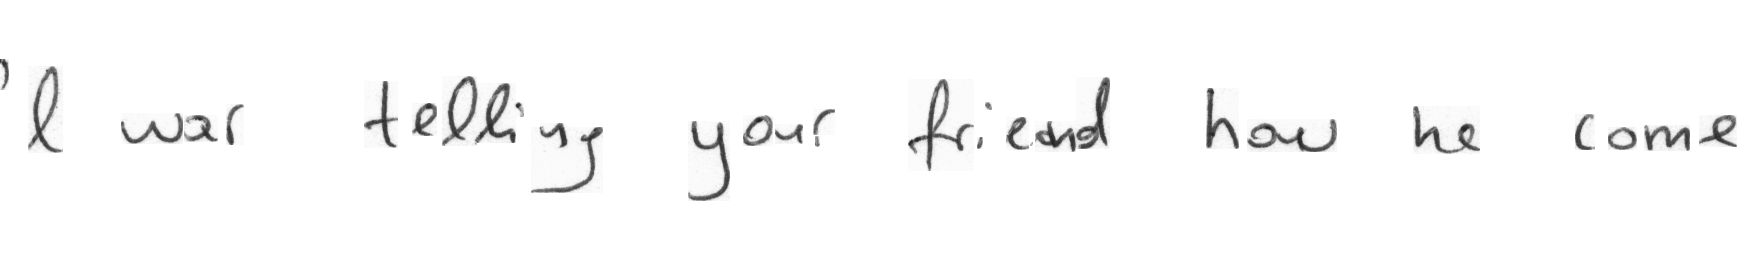 'I was telling your friend how he come